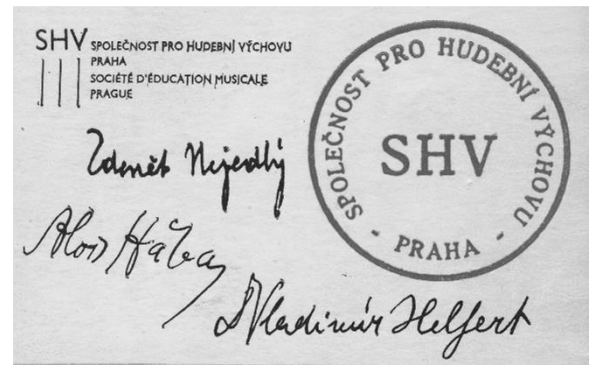 SHV SPOLEČNOST PRO HUDEBNÍ VÝCHOVU
PRAHA
SOCIÉTÉ D'ÉDUCATION MUSICALE
PRAGUE
SPOLEČNOST PRO HUDEBNÍ VÝCHOVU
SHV
- PRAHA -
Zdeněk Nejedlý
Alois Hába
Dr Vladimír Helfert